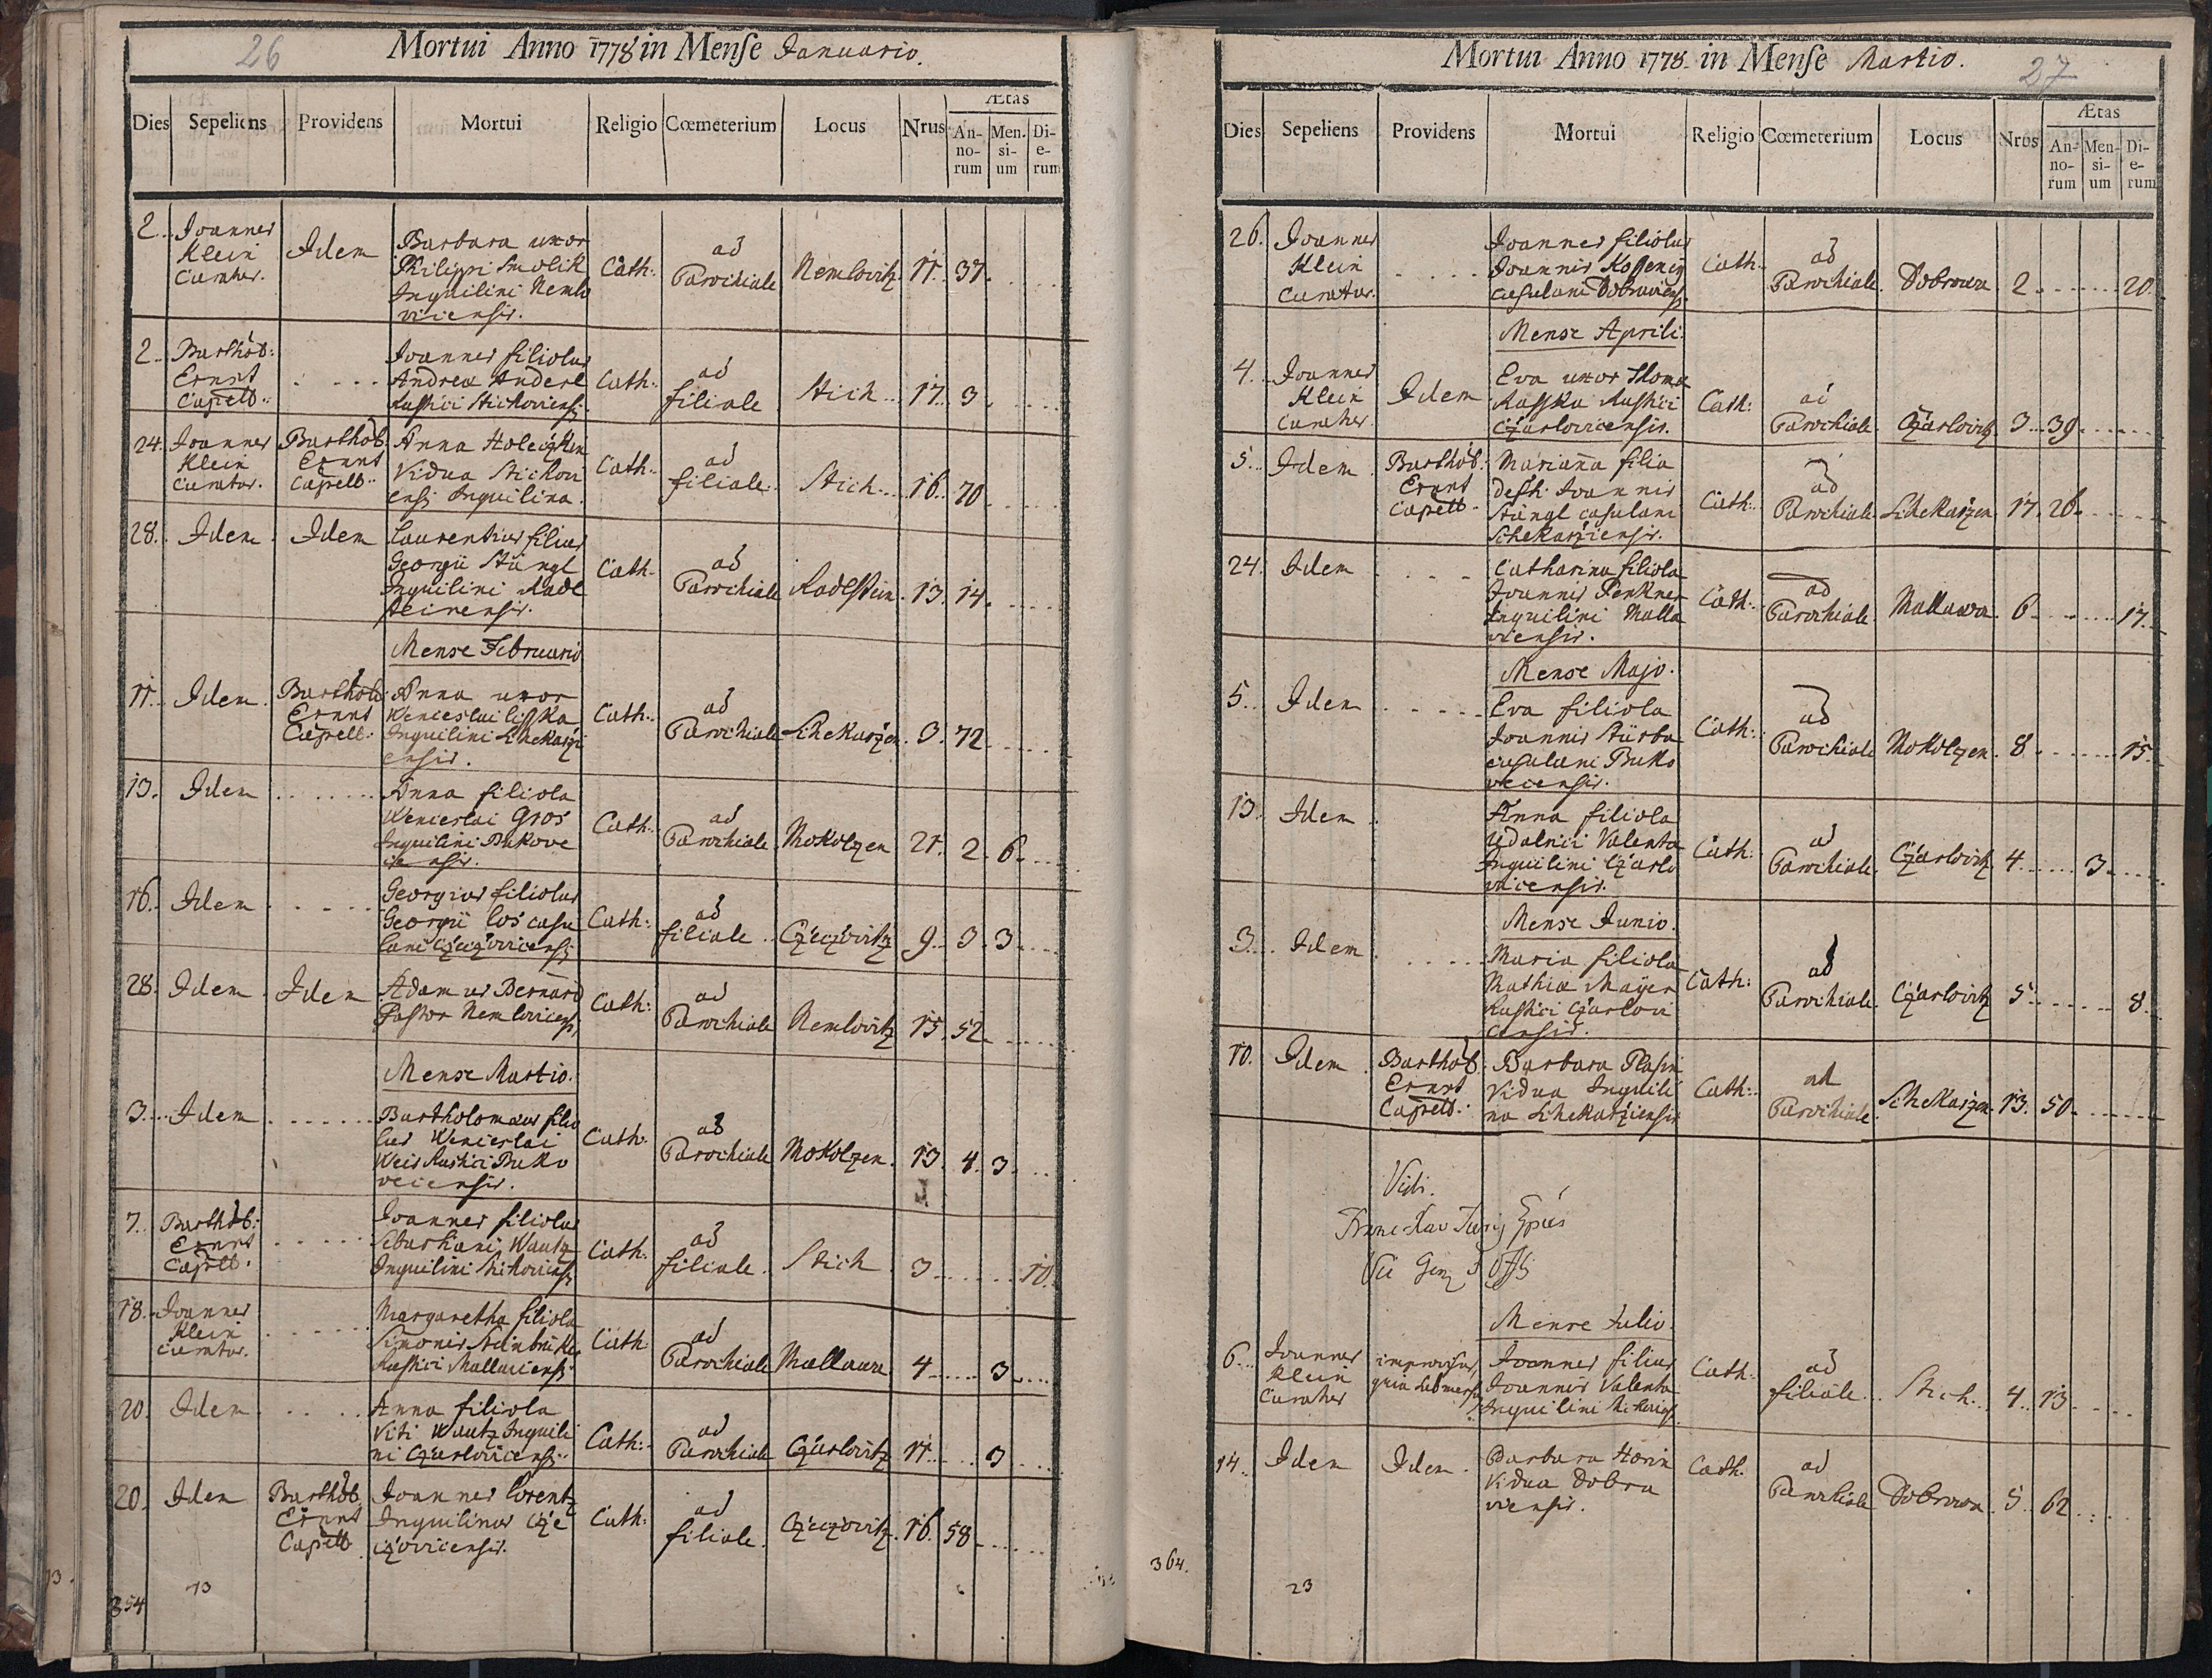 26
Mortui Anno 1778 in Mense Januario.
Dies Sepeliens Providens Mortui Religio Cœmeterium Locus Nrus Ætas
An-no-rum Men-si-um Di-e-rum
2. Joannes Klein Curatus. Idem Barbara uxor
Philippi Smolik
Inquilini Nemlo
viciensis. Cath: ad Parochiale Nemlovitz 11. 37.
2. Barthol: Ernst Capell: Joannes filiolus
Andreæ Anderl
Rustici Stichoviensis. Cath: ad filiale Stich 17. 3.
24. Joannes Klein Curatus. Barthol: Ernst Capell: Anna
Vidua Stichovi
ensis Inquilina. Cath: ad filiale Stich 16. 70.
28. Idem Idem Laurentius filius
Georgii Stüngl
Inquilini Radl
steinensis. Cath: ad Parochiale Radlstein. 13. 14.
Mense Februario
11. Idem. Barthol: Ernst Capell: Anna uxor
Wenceslai Lisska
Inquilini Schekarži
ensis. Cath: ad Parochiale Schekaržen. 3. 72.
13. Idem Anna filiola
Wenceslai Gros
Inquilini Bukove
censis. Cath: ad Parochiale Mokolzen 21. 2. 6.
16. Idem Georgius filiolus
Georgii Los casu
lani Cžečžoviciensis Cath: ad filiale Cžečžovitz 9. 3. 3.
28. Idem Idem Adamus Bernard
Pastor Nemloviciensis Cath: ad Parochiale Nemlovitz 15. 52.
Mense Martio.
3. Idem Bartholomæus filio
lus Wenceslai
Weis Rustici Buko
veciensis. Cath: ad Parochiale Mokolzen. 13. 4. 3.
7. Barthol: Ernst Capell: Joannes filiolus
Sebastiani Wautz
Inquilini Stichoviensis Cath: ad filiale. Stich 3 10.
18. Joannes Klein Curatus. Margaretha filiola
Simonis
Rustici Mallaviensis Cath: ad Parochiale Mallawa 4 3
20. Idem Anna filiola
Viti Wautz Inquili
ni Cžarloviciensis Cath: ad Parochiale Cžarlovitz 11 3
20. Idem Barthol: Ernst Capell: Joannes Lorentz
Inquilinus Cže
čžoviciensis. Cath: ad filiale. Cžečžovitz. 16. 58
13
354
27
Mortui Anno 1778. in Mense Martio.
Dies Sepeliens Providens Mortui Religio Cœmeterium Locus Nrus Ætas
An-no-rum Men-si-um Di-e-rum
26. Joannes Klein Curatus. Joannes filiolus
Joannis
casulani Dobraviensis Cath: ad Parochiale. Dobrawa 2 20.
Mense Aprili.
4. Joannes Klein Curatus Idem Eva uxor Thomæ
Rasska Rustici
Cžarloviciensis. Cath: ad Parochiale. Cžarlovitz 3 39.
5. Idem Barthol: Ernst Capell: Marianna filia
defti Joannis
Stüngl casulani
Schekaržiensis. Cath: ad Parochiale. Schekaržen 17. 26.
24. Idem Catharina filiola
Joannis Penkner
Inquilini Malla
viensis. Cath: ad Parochiale. Mallawa. 6 17.
Mense Majo.
5. Idem Eva filiola
Joannis Stürba
casulani Buko
veciensis. Cath: ad Parochiale Mokolzen. 8 15.
13. Idem Anna filiola
Udalrici Valenta
Inquilini Cžarlo
viciensis. Cath: ad Parochiale. Cžarlovitz 4 3
Mense Junio.
3. Idem Maria filiola
Mathiæ Mayer
Rustici Cžarlovi
censis. Cath: ad Parochiale. Cžarlovitz 5 8
10. Idem Barthol: Ernst Capell: Barbara Plasin
Vidua Inquili
na Schekaržiensis Cath: ad Parochiale. Schekaržen. 13. 50.
Vidi.
Mense Julio.
6. Joannes Klein Curatus improvisus, quia submersus Joannes filius
Joannis Valenta
Inquilini Stichoviensis Cath: ad filiale. Stich 4. 13
14. Idem Idem. Barbara Horin
Vidua Dobra
viensis. Cath. ad Parochiale Dobrawa. 5. 62
364.
23